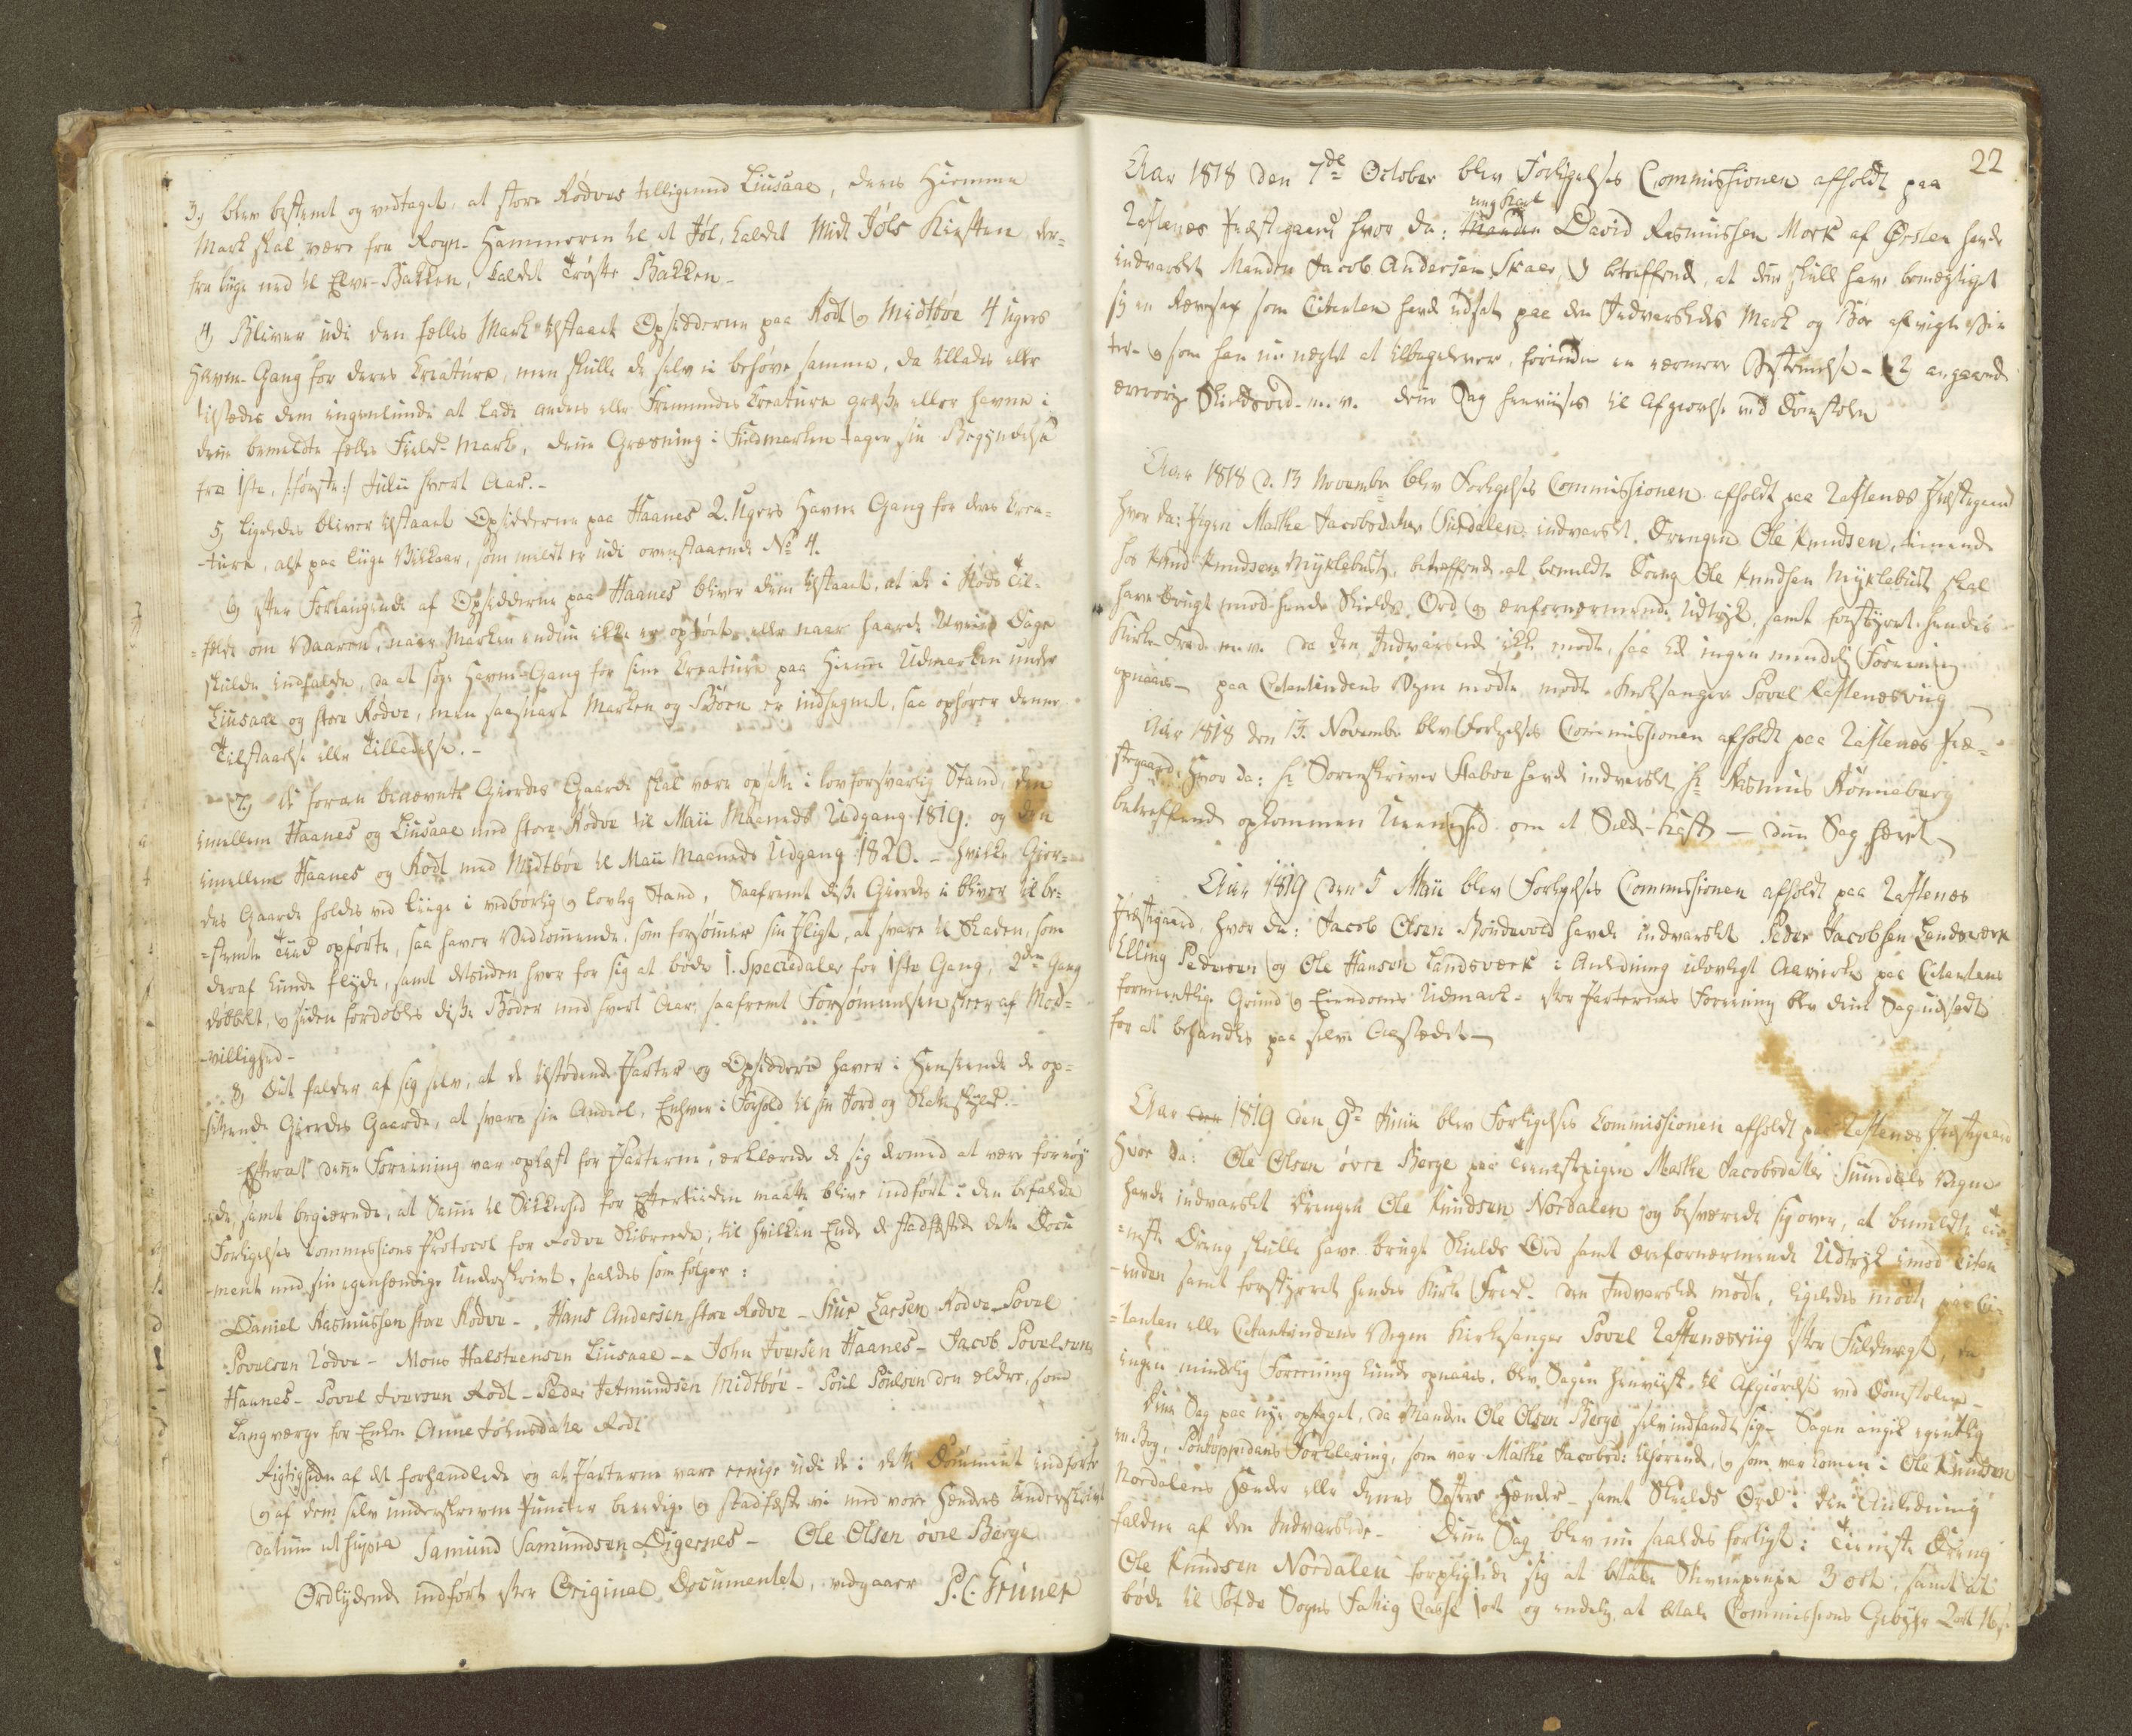 3, blev bestemt og vedtaget, at store Rødves tilliggende Liusaae, deres Hiemme
Mark skal være fra Rogn-Hammeren til et Jøl, kaldet Midt Jøls Kiesten der-
fra liige ned til Elve-Bakken, kaldet Trøste Bakken -
4, Bliver udi den fælles Mark tilstaaet Opsidderne paa Rødt og Midtbøe 4 Ugers
Havne-Gang for deres Creature, men skulle de selv ei behøve samme, da tillades eller
tilstædes dem ingenlunde at lade andres eller Fremmedes Creature græsse eller havne i
denne bemeldte fælles Field-Mark, denne Græsning i Fieldmarken tager sin Begyndelse
fra 1ste, /:første:/ Julii hvert Aar. -
5, Ligeledes bliver tilstaaet Opsidderne paa Haanes 2. Ugers Havne Gang for deres Crea-
-ture, alt paa liige Vilkaar, som meldt er udi ovenstaaende No 4.
6, efter Forlangende af Opsidderne paa Haanes bliver dem tilstaaet, at de i Nøds Til-
=fælde om Vaaren, naar Marken endnu ikke er optøet eller naar haarde Uveirs Dage
skulde indfalde, da at søge Havne-Gang for sine Creature paa Hiemme Udmarken under
Liusaae og store Rødve, men saasnart Marken og Bøen er indhegnet, saa ophører denne
Tilstaaelse eller Tilladelse. -
7, de foran benævnte Gierdes Gaarde skal være opsatte i lovforsvarlig Stand, den
imellem Haanes og Liusaae med store Rødve til Maii Maaneds Udgang 1819. og den
imellem Haanes og Rødt med Midtbøe til Maii Maaneds Udgang 1820. - hvilke Gier-
des Gaarde holdes ved liige i vedbørlig og lovlig Stand, Saafremt disse Gierder ei bliver til be-
=stemte Tiid opførte, saa haver Vedkommende, som forsømer sin Pligt, at svare til Skaden, som
deraf kunde flyde, samt desuden hver for sig at bøde 1. Speciedaler for 1ste Gang, 2den Gang
dobbelt, og siden fordobles disse Bøder med hvert Aar, saafremt Forsømmelsen skeer af Mod-
-villighed -
8, Det falder af sig selv, at de tilstødende Parter og Opsiddere haver i Henseende de op-
sættende Gierdes Gaarde, at svare sin Andeel, Enhver i Forhold til sin Jord og Matteskyld. -
Efterat denne Forening var oplæst for Parterne, erklærede de sig dermed at være fornøy
ede, samt begiærede, at Samme til Sikkerhed for Eftertiiden maatte blive indført i den befalede
Forligelses Commissions Protocol for Rødve Skibrede; til hvilken Ende de stadfæstede dette Docu
-ment med sin egenhændige Underskrivt, saaledes som følger:
Daniel Rasmussen store Rødve - Hans Andersen store Rødve - Siur Larsen Rødve - Povel
Povelsen Rødve - Mons Halstensen Liusaae - John Iversen Haanes - Jacob Povelsen
Haanes - Povel Iversen Rødt - Peder Jetmundsen Midtbøe - Poul Poulsen den ældre, som
Laugværge for Enken Anne Johnsdatter Rødt
Rigtigheden af det forhandlede og at Parterne vare eenige udi de i dette Document indførte
og af dem selv underskrevne Puncter bevidne og stadfæste vi med vore Hænders Underskrivt
datum ut supra Samund Samundsen Digernes - Ole Olsen øvre Berge
Ordlydende indført efter Original Documentet, vedgaaer P. C. Grüner
22
Aar 1818 den 7de October blev Forligelses Commissionen afholdt paa
ungkarl
Ræstenæs Præstegaard hvor da: Manden David Rasmussen Mork af Ørsten havde
indvarslet Manden Jacob Andersen Skaar, 1) betreffend, at denne skulle have bemægtiget
sig en Rævesax som Citanten havde udsat paa den Indvarsledes Mark og Bøe af vigte
ter - og som han nu nægtet at tilbagelevere, forinden en nærmere Bestemmelse - 2) angaaende
ærerørig Skieldsord m. v. denne Sag henviises til Afgiørelse ved Domstolen
Aar 1818 d. 13 November blev Forligelses Commissionen afholdt paa Ræstenæs Præstegaard
hvor da: Pigen Marthe Jacobsdatter Surdalen indvarslet Drengen Ole Knudsen, tienende
hos Knud Knudsen Myklebust, betreffende at bemeldte Dreng Ole Knudsen Myklebust skal
have brugt imod hende Skields Ord og ærefornærmende Udtryk, samt forstyrret hendes
Kirke-Fred m. v. Da den Indvarslede ikke mødte, saa kd ingen mindelig Forening
opnaaes - paa Citantindens Vegne mødte mødte Kirkesanger Povel Ræstenæsviig
Aar 1818 den 13. November blev Forligelses Commissionen afholdt paa Ræstenæs Præ-
stegaard, hvor da: Hr Sorenskriver Stabøe havde indvarslet Hr Rasmus Rønneberg
betreffende opkommen Ueenighed om et Silde-Kast - denne Sag hævet
Aar 1819 den 5 Maii blev Forligelses Commissionen afholdt paa Ræstenæs
Præstegaard, hvor da: Jacob Olsen Brudevold havde indvarslet Peder Jacobsen Landsværk
Elling Pedersen og Ole Hansen Landsværk i Anledning ulovligt Aavirke paa Citantens
formeentlige Grund og Eiendoms Udmark - efter Parternes Forening blev denne Sag udsadt
for at behandles paa selve Aastædet
Aar den 1819 den 9de Junii blev Forligelses Commissionen afholdt paa Ræstenæs Præstegaard
Hvor da: Ole Olsen øvre Berge paa Tienestepigen Marthe Jacobsdatter Sundals Vegne
havde indvarslet Drengen Ole Knudsen Nordalen og besværede sig over, at bemeldte Tie-
=neste Dreng skulle have brugt Skields Ord samt ærefornærmende Udtryk imod Citan
-inden samt forstyrret hendes Kirke Fred. Den Indvarslede mødte, ligeledes mødte paa Ci-
=tanten eller Citantindens Vegne Kirkesanger Povel Ræstenæsviig efter Fuldmagt, da
ingen mindelig Forening kunde opnaaes, blev Sagen henviist til Afgiørelse ved Domstolen -
Denne Sag paa nye optaget, da Manden Ole Olsen Berge selv indfandt sig - Sagen angik egentlig
en Bog, Pontoppidans Forklaring, som var Marthe Jacobsd: tilhørende, og som var kommen i Ole Knudsen
Nordalens Hænder eller dennes Søsters Hænder - samt Skields Ord i den Anledning
faldne af den Indvarslede - Denne Sag blev nu saaledes forligt: Tieneste Dreng
Ole Knudsen Nordalen forpligtede sig at betale Stevnepenge 3 ort, samt at
bøde til Søfde Sogns Fattig Casse 1 ort og endelig at betale Commissions Gebyhr 2 ort 16 s.